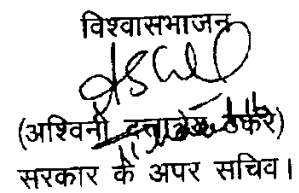 विश्वासभाजन
(अश्विनी दत्तात्रेय ठकरे)
सरकार के अपर सचिव।